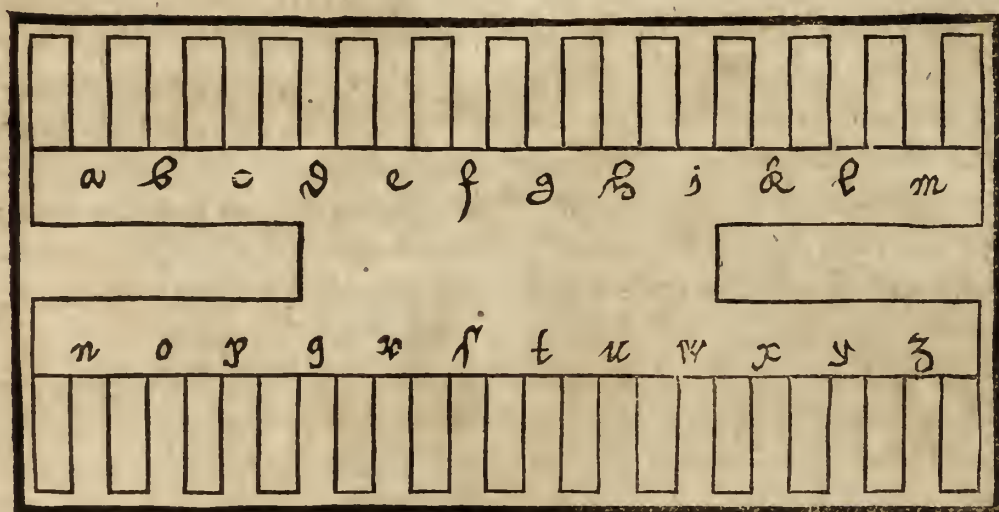 a b c d e f g h i k l m
n o p q r ſ t u w x y z